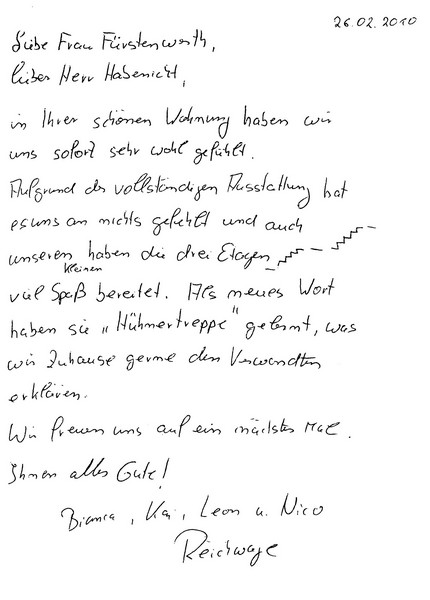 26.02.2010
Liebe Frau Fürstenwerth,
lieber Herr Habenicht,
in Ihrer schönen Wohnung haben wir
uns sofort sehr wohl gefühlt.
Aufgrund der vollständigen Ausstattung hat
es uns an nichts gefehlt und auch
unseren kleinen haben die drei Etagen
viel Spaß bereitet. Als neues Wort
haben sie „Hühnertreppe" gelernt, was
wir Zuhause gerne den Verwandten
erklären.
Wir freuen uns auf ein nächstes Mal.
Ihnen alles Gute!
Bianca, Kai, Leon u. Nico